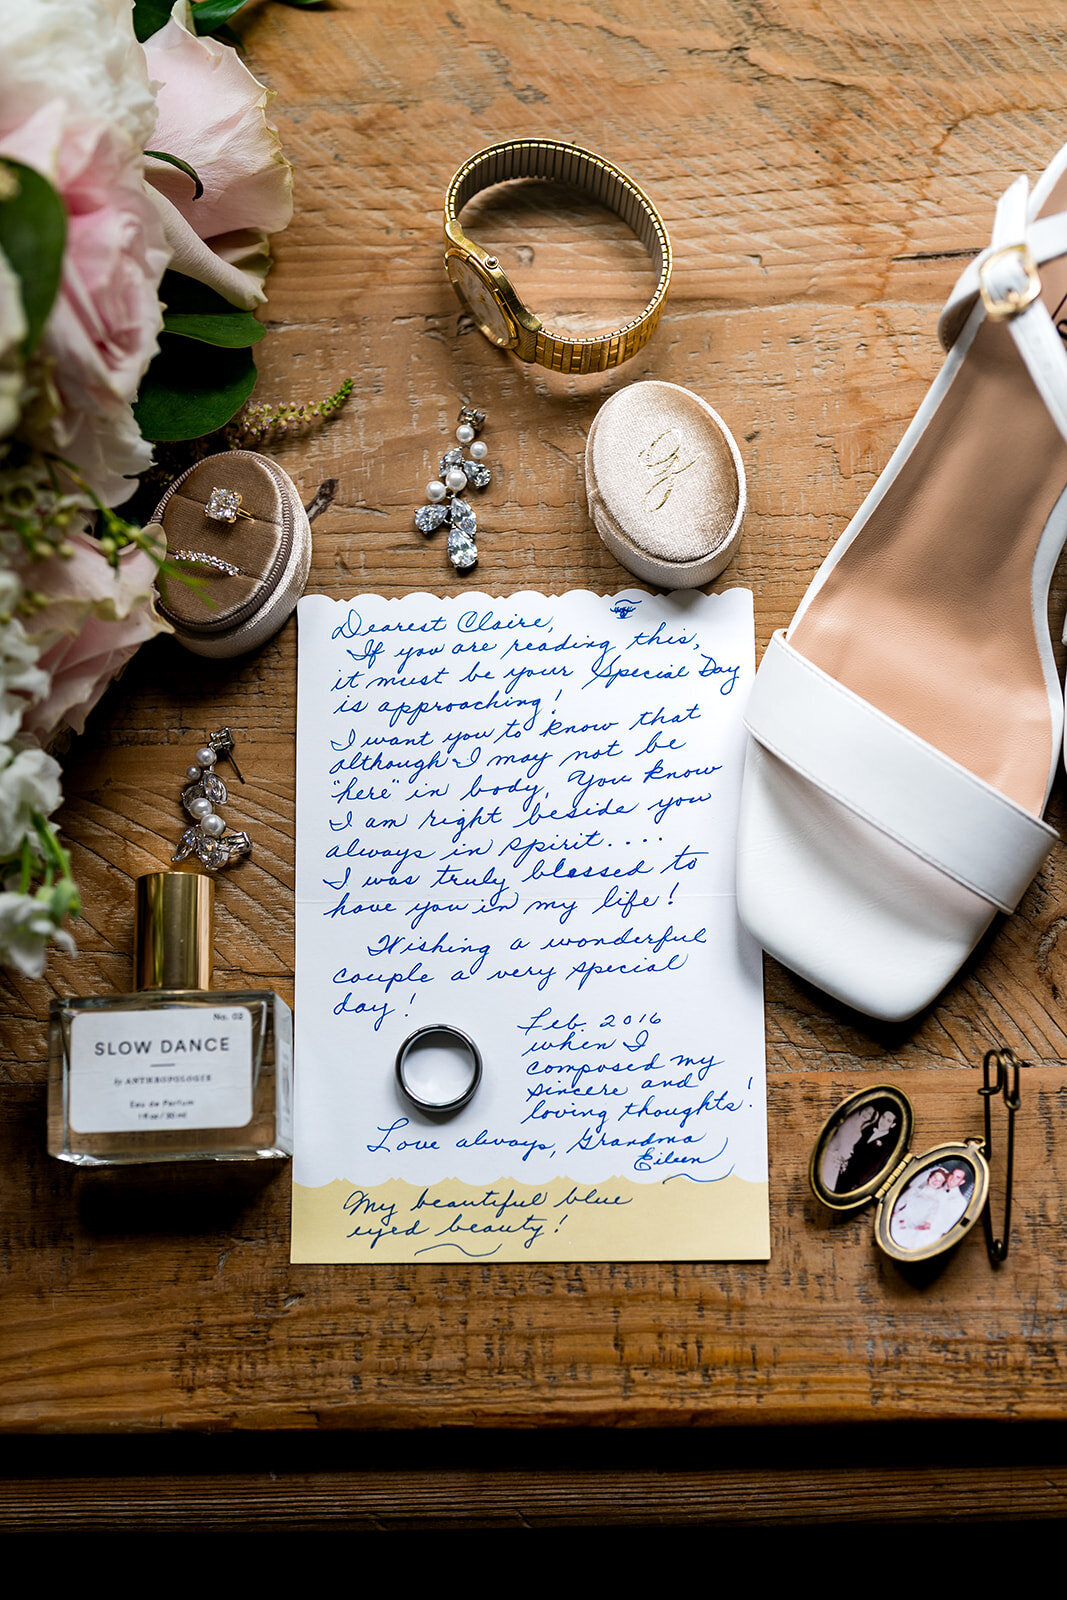 Dearest Claire,
If you are reading this,
it must be your Special Day
is approaching!
I want you to know that
although I may not be
"here" in body, You know
I am right beside you
always in spirit....
I was truly blessed to
have you in my life!
Wishing a wonderful
couple a very special
day!
Feb. 2016
when I
composed my
sincere and
loving thoughts!
Love always, Grandma
Eileen
My beautiful blue
eyed beauty!
No. 02
SLOW DANCE
by ANTHROPOLOGIE
Eau de Parfum
1 fl oz / 30 ml